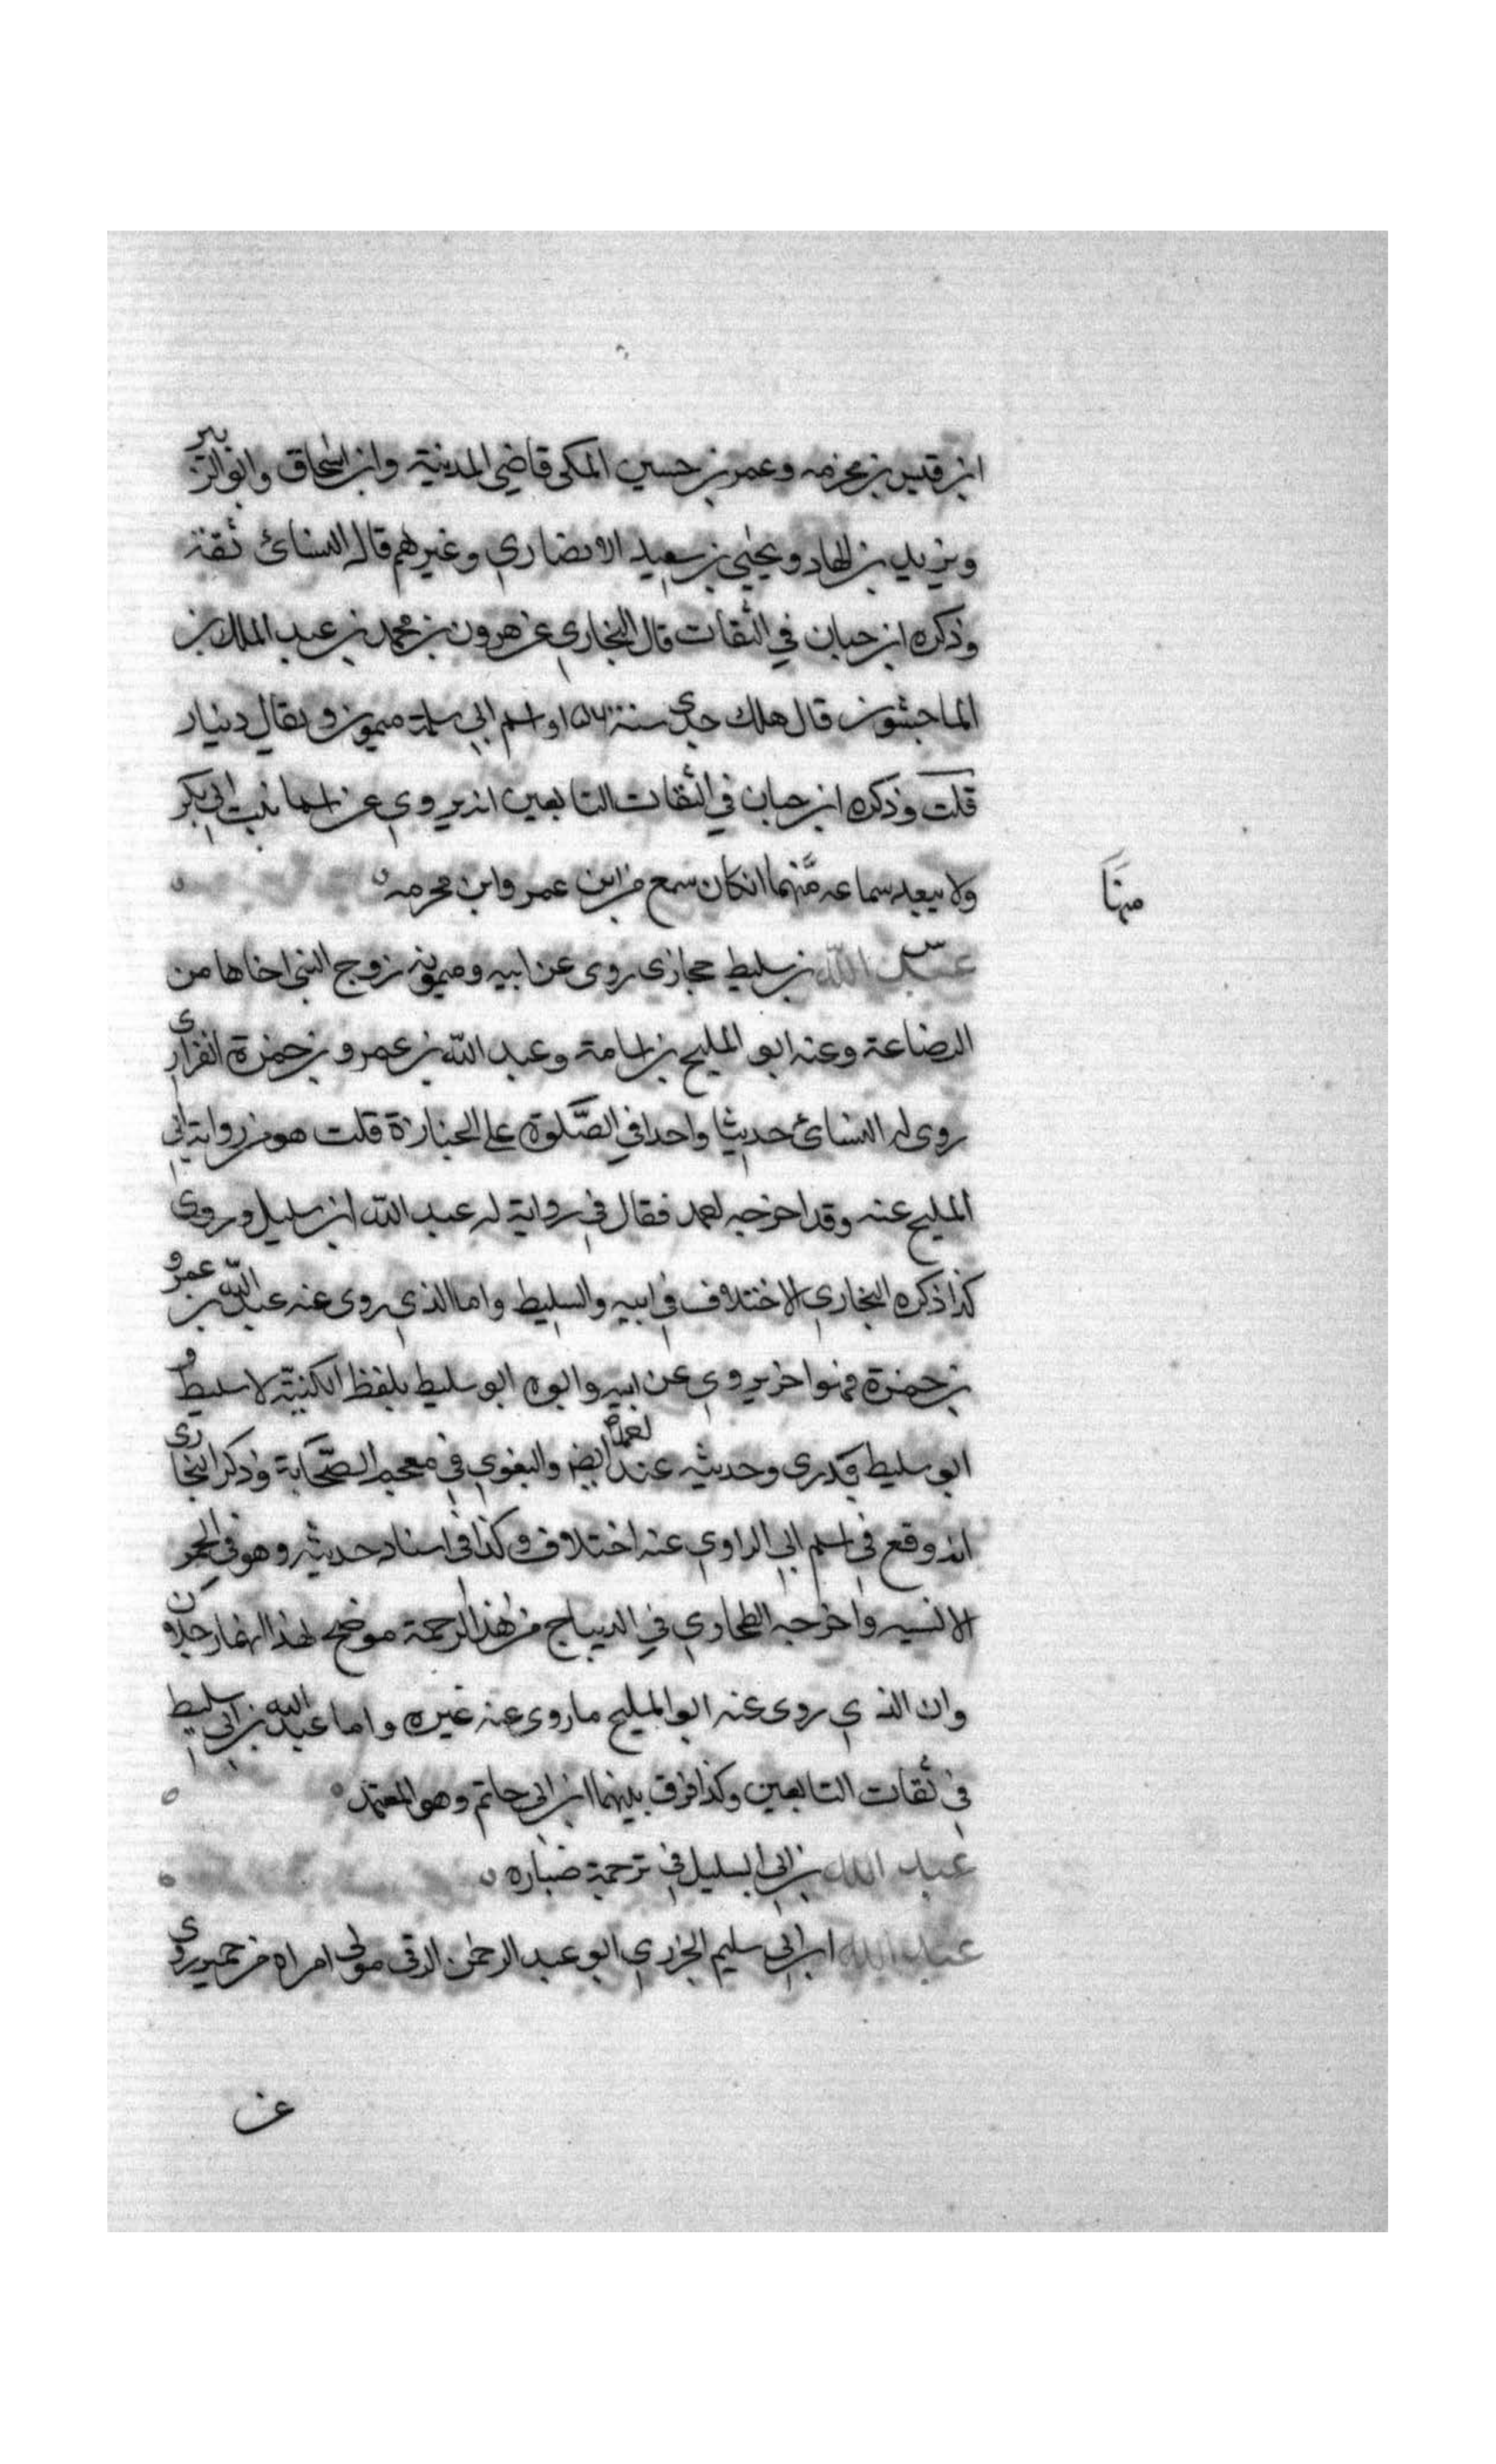 ابن قيس بن مخرمه وعمر بن حسين المكى قاضي المدينة وابن اسحاق وابو الزبير
ويزيد بن الهاد ويحيى بن سعيد الانصاري وغيرهم قال النسائ ثقة
وذكره ابن حبان في الثقات قال البخاري عن هرون بن محمد بن عبد الملك بن
الماجشون قال هلك جدى سنة واسم ابي سلمة ميمون ويقال دينار
قلت وذكره ابن حبان في الثقات التابعين انه يروي عن اسما بنت ابي بكر
ولا يبعد سماعه منهما ان كان سمع من ابن عمر وابن مخرمه
منها
س
عبد الله بن سليط حجازى روى عن ابيه وميمونه زوج النبى اخاها من
الرضاعة وعنه ابو المليح بن اسامة وعبد الله بن عمرو بن حمزة الفزارى
روى له النسائ حديثا واحدا في الصلوة على الجنازة قلت هو من رواية ابي
المليح عنه وقد اخرجه احمد فقال في رواية له عبد الله ابن سليل وروى
كذا ذكره البخاري الاختلاف في ابيه والسليط واما الذي روى عنه عبد الله بن عمرو
بن حمزة فهو اخر يروي عن ابيه وابوه ابو سليط بلفظ الكنية لا سليط و
ابو سليط بدرى وحديثه عند احمد ايضا والبغوي في معجم الصحابة وذكر البخارى
انه وقع في اسم ابي الراوي عنه اختلاف وكذا في اسناد حديثه وهو في الحمر
الانسيه واخرجه الطحاوي في من هذا الرحمة موضح لهذا
وان الذي روى عنه ابو المليح ما روى عنه غيره واما عبد الله بن ابي سليط
في ثقات التابعين وكذا فرق بينهما ابن ابي حاتم وهو المعتمد
عبد الله بن ابي السليل في ترجمة ضباره
عبد الله ابن ابي سليم الجزري ابو عبد الرحمن الرقى مولى امراه من حمير روى
عن